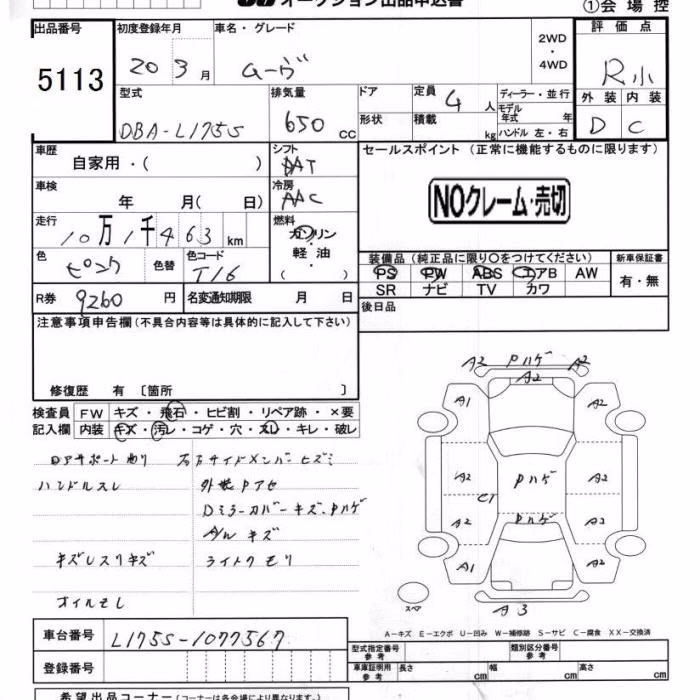 オークション出品申込書
①会場控
出品番号
5113
初度登録年月
20 3 月
車名・グレード
ムーヴ
2WD
・
4WD
評価点
R小
外装 内装
D C
型式
DBA-L175S
排気量
650 cc
ドア
形状
定員 4 人
積載 kg
ディーラー・並行
モデル
年式 年
ハンドル 左・右
車歴
自家用・( )
シフト
AT
車検
年 月( 日)
冷房
AAC
走行
10万1千463 km
燃料
ガソリン
・
軽油
( )
色
ピンク
色替
色コード
T16
R券 9260 円
名変通知期限 月 日
セールスポイント (正常に機能するものに限ります)
NOクレーム・売切
装備品 (純正品に限り〇をつけてください)
新車保証書
PS PW ABS エアB AW
有・無
SR ナビ TV カワ
後日品
注意事項申告欄 (不具合内容等は具体的に記入して下さい)
修復歴 有 〔箇所 〕
検査員
記入欄
FW キズ・飛石・ヒビ割・リペア跡・×要
内装 キズ・汚レ・コゲ・穴・スレ・キレ・破レ
ハンドルスレ
外装Pアセ
Dミラーカバーキズ、Pハゲ
A/W キズ
キズレスリキズ
ライトクモリ
A2 Pハゲ A2
A2
A1 A2
A2 Pハゲ A2
C1
A2 Pハゲ A2
A1 A2
スペア
A3
A-キズ E-エクボ U-凹み W-補修跡 S-サビ C-腐食 XX-交換済
車台番号 L175S-1077567
登録番号
型式指定番号
参考
類別区分番号
参考
車庫証明用
参考
長さ cm 幅 cm 高さ cm
希望出品コーナー (コーナーは各会場により異なります。)